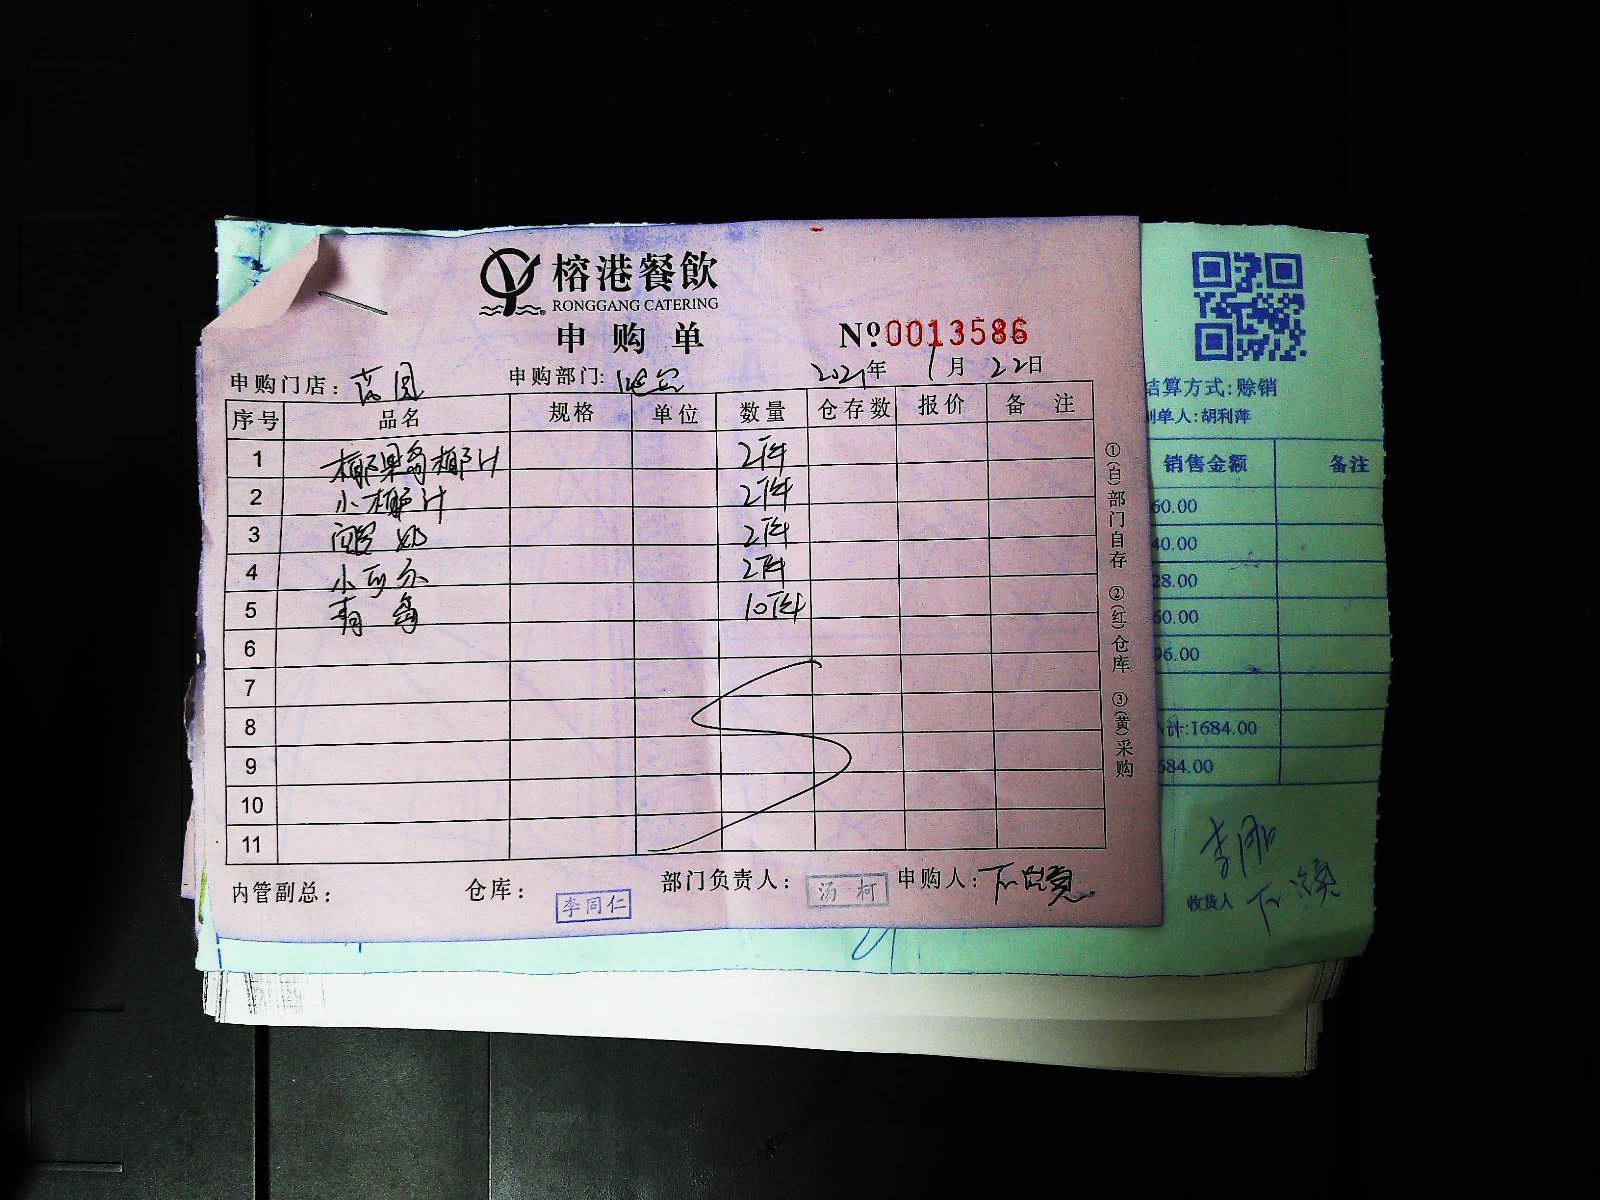 榕港餐飲
RONGGANG CATERING
申购单
№0013586
申购门店:
申购部门:
2021年1月22日
序号 品名 规格 单位 数量 仓存数 报价 备注
1 椰果岛椰汁 2件
2 小椰汁 2件
3 2件
4 小可乐 2件
5 青岛 10件
6
7
8
9
10
11
①(白)部门自存 ②(红)仓库 ③(黄)采购
内管副总:
仓库: 李同仁
部门负责人: 汤柯
申购人:
结算方式:赊销
制单人:胡利萍
销售金额 备注
60.00
40.00
28.00
60.00
96.00
计:1684.00
684.00
李刚
收货人